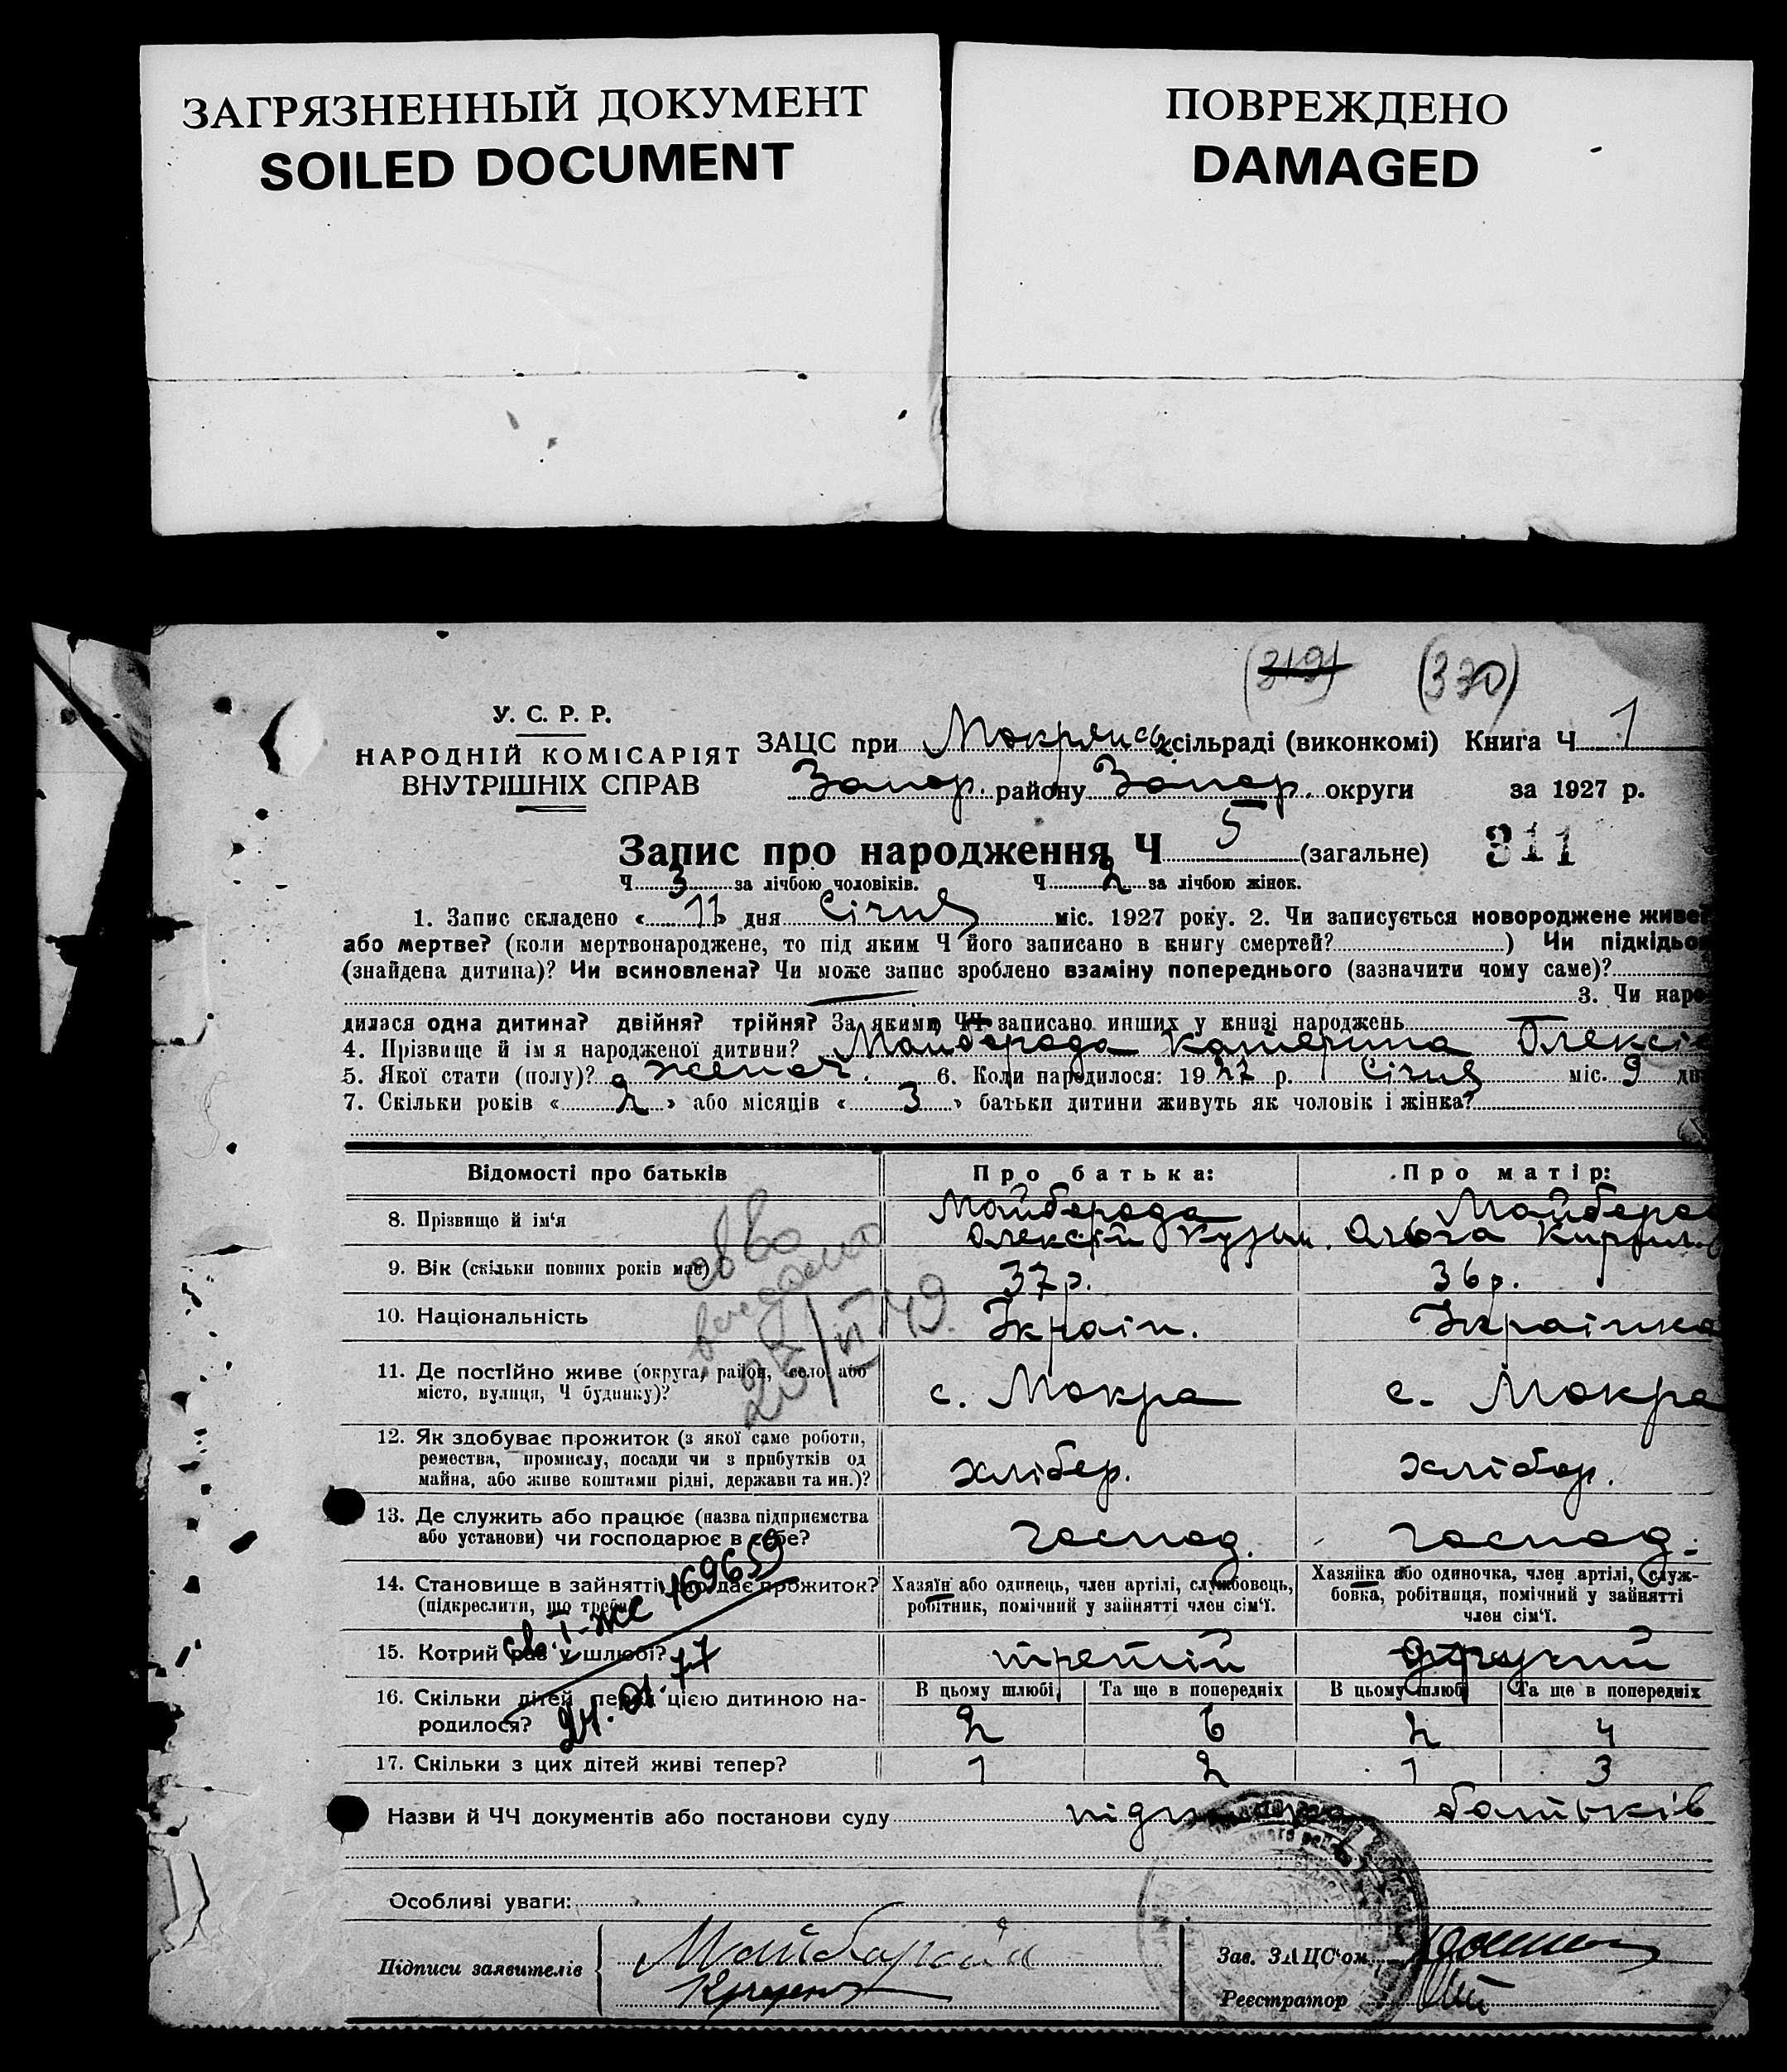 ЗАГРЯЗНЕННЫЙ ДОКУМЕНТ
SOILED DOCUMENT
ПОВРЕЖДЕНО
DAMAGED
(319) (330)
У. С. Р. Р.
НАРОДНІЙ КОМІСАРІЯТ
ВНУТРІШНІХ СПРАВ
ЗАЦС при Мокрянськ сільраді (виконкомі) Книга Ч 1
Запор. району Запор. округи за 1927 р.
Запис про народження Ч 5 (загальне) 311
Ч 3 за лічбою чоловіків. Ч 2 за лічбою жінок.
1. Запис складено « 11 » дня Січня міс. 1927 року. 2. Чи записується новороджене живе?
або мертве? (коли мертвонароджене, то під яким Ч його записано в книгу смертей? ) Чи підкідьо
(знайдена дитина)? Чи всиновлена? Чи може запис зроблено взаміну попереднього (зазначити чому саме)?
3. Чи наро
дилася одна дитина? двійня? трійня? За якими ЧЧ записано инших у книзі народжень
4. Прізвище й ім я народженої дитини? Майборода Катерина Олексі
5. Якої стати (полу)? женоч. 6. Коли народилося: 19 27 р. Січня міс. 9 дн
7. Скільки років « 2 » або місяців « 3 » батьки дитини живуть як чоловік і жінка?
Відомості про батьків Про батька: Про матір:
8. Прізвище й ім'я Майборода Олексій Кузьм. Майборо Ольга Кирил.
9. Вік (скільки повних років має) 37 р. 36 р.
10. Національність Україн. Українка
11. Де постійно живе (округа, район, село або
місто, вулиця, Ч будинку)? с. Мокра с. Мокра
12. Як здобуває прожиток (з якої саме роботи,
ремества, промислу, посади чи з прибутків од
майна, або живе коштами рідні, держави та ин.)? хлібор. хлібор.
13. Де служить або працює (назва підприємства
або установи) чи господарює в себе? господ. господ.
14. Становище в зайнятті, що дає прожиток?
(підкреслити, що треба)
Хазяїн або одинець, член артілі, службовець,
робітник, помічний у зайнятті член сім'ї.
Хазяйка або одиночка, член артілі, служ-
бовка, робітниця, помічний у зайнятті
член сім'ї.
15. Котрий раз у шлюбі? третій другий
16. Скільки дітей перед цією дитиною на-
родилося?
В цьому шлюбі Та ще в попередніх В цьому шлюбі Та ще в попередніх
2 6 2 4
17. Скільки з цих дітей живі тепер? 1 2 1 3
св-во
выдано
25/VI 49.
св. I-ЖС 169659
24.01.77
Назви й ЧЧ документів або постанови суду батьків
Особливі уваги:
Підписи заявителів Майборода
Зав. ЗАЦС'ом
Реєстратор